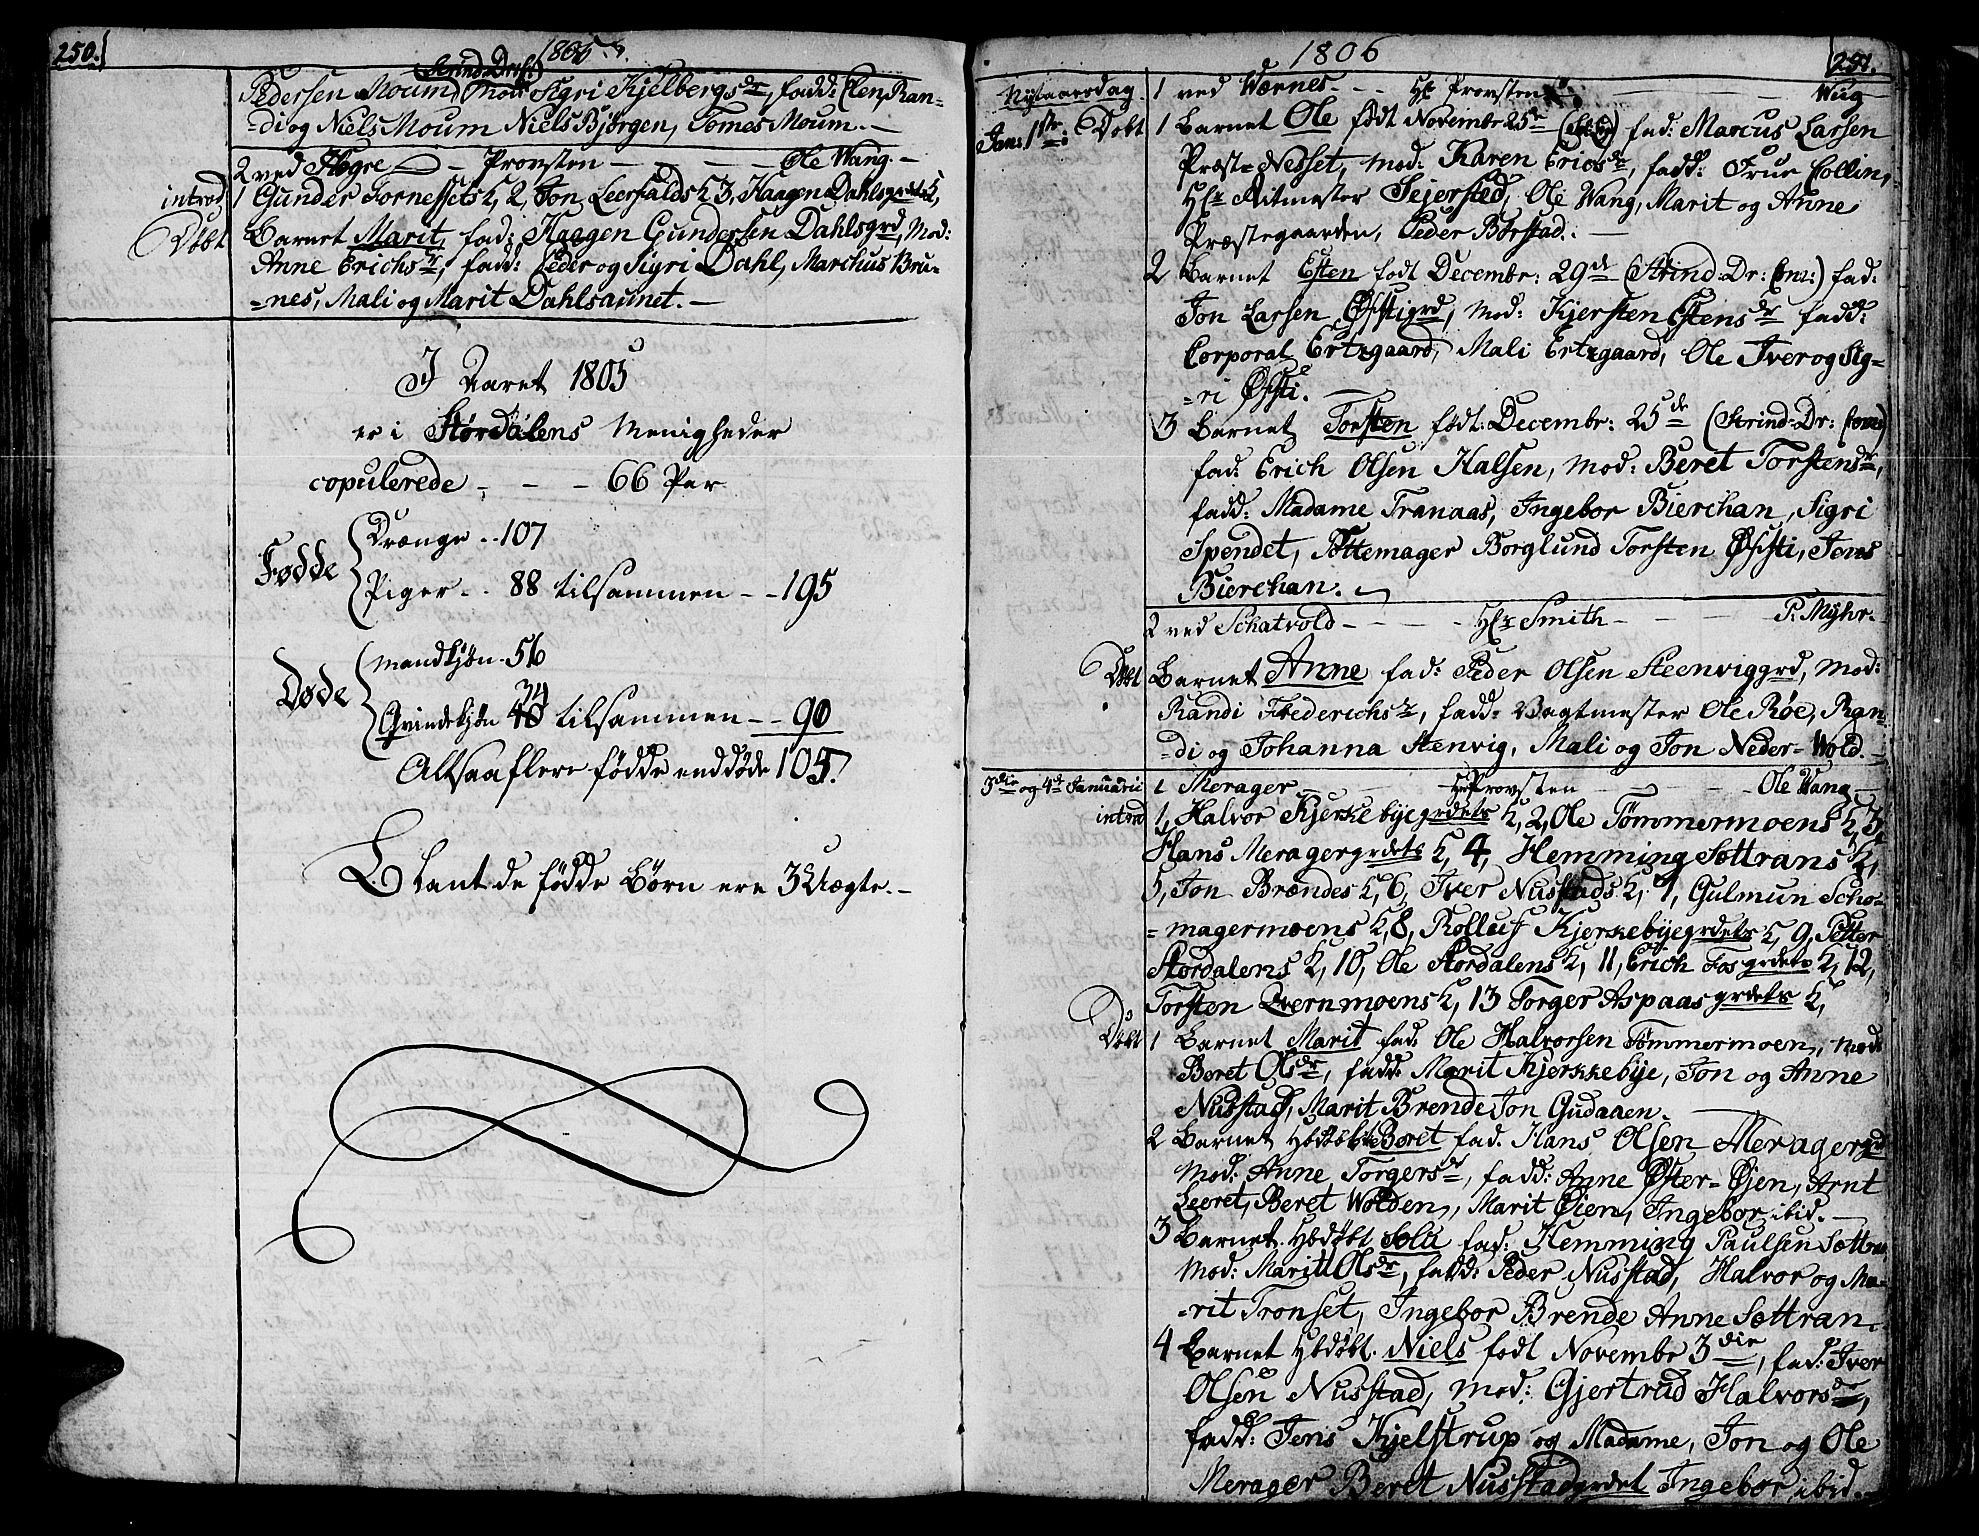 250.
1805.
(Strind-Drag:)
Pedersen Moum, Mod: Sigri Kjelbergsdr, fadd: Elen, Ran-
-di og Niels Moum Niels Bjørgen, Tomes Moum.
2 ved Hegre - Provsten - - - - Ole Wang.
introd 1 Gunder Fornessets K, 2, Jon Leerfalds K 3, Haagen Dahlsgrdets K,
Døbt Barnet Marit, fad: Haagen Gundersen Dahlsgrd, Mod:
Anne Erichsdr, fadd: Peder og Sigri Dahl, Marchus Bru-
-nes, Mali og Marit Dahlsaunet.
I Aaret 1805
er i Størdalens Menigheder
copulerede - - - 66 Par
Fødde
Drænge - - 107
Piger - - 88 tilsammen - - 195
Døde
Mandkjøn - 56
34
Qvindekjøn 40 tilsammen - - 90
Altsaa flere fødde end døde 105.
Blant de fødde Børn ere 3 Uægte.
1806
251.
Nytaarsdag 1 ved Wærnes - - - Hr Provsten - - - Wug
Jan: 1ste: Døbt 1 Barnet Ole født Novembr 25de fad: Marcus Larsen
Præst-Nedset, mod: Karen Ericsdr, fadd: Frue Collin,
Hr Ritmester Sejersted, Ole Wang, Marit og Anne
Præstegaarden, Peder Børstad.
2 Barnet Esten født Decembr: 29de (Strind-Dr: Com:) fad:
Jon Larsen Øfstigrd, Mod: Kjersten Estensdr fadd:
Corporal Ertzgaard, Mali Ertzgaard, Ole Iver og Sig-
-ri Øfsti.
3 Barnet Torsten født: Decembr: 25de (Strind-Dr: Com:)
fad: Erich Olsen Halsen, Mod: Beret Torstensdr,
fadd: Madame Tranaas, Ingebor Bierchan, Sigri
Spendet, Pottemager Borglund Torsten Øfsti, Jens
Bierchan.
2 ved Schatvold - - - - Hr Smith - - - - P: Myhr.
Døbt Barnet Anne fad: Peder Olsen Steenviggrd, Mod:
Randi Frederichsdr, fadd: Vagtmester Ole Røe, Ran-
-di og Johanna Stenvig, Mali og Jon Neder-Wold.
3die og 4de Januarii 1 Merager - - - Hr Provsten - - - Ole Wang
introd 1, Halvor Kjerkebyegrdets K, 2, Ole Tømmermoens K, 3,
Hans Meragergrdets K, 4, Hemming Sættrans K,
5, Jon Brændes K, 6, Iver Nustads K, 7, Gulmun Scho-
-magermoens K, 8, Rolluf Kjerkebyegrdets K, 9, Petter
Stordalens K, 10, Ole Stordalens K, 11, Erich Fosgrdets K, 12,
Torsten Qvernmoens K, 13 Torger Aspaasgrdets K,
Døbt 1 Barnet Marit fad: Ole Halvorsen Tømmermoen, Mod
Beret Olsdr, fadd: Marit Kjerkkebye, Jon og Anne
Nustad, Marit Brende Jon Gudaaen.
2 Barnet Hiødøbt Beret fad: Hans Olsen Meragergrd
Mod: Anne Torgersdr, fadd: Anne Øster-Øjen, Arnt
Leeret, Beret Wolden, Marit Øien, Ingebor ibid.
3 Barnet Hiødøbt Solu fad: Hemming Paulsen Sættran
Mod: Marit Olsdr, fadd: Peder Nusstad, Halvor og Ma-
-rit Tronset, Ingebor Brende Anne Sættran.
4 Barnet Hiødøbt Niels født Novembr 3die, fad: Iver
Olsen Nusstad, Mod: Gjertrud Halvorsdr,
fadd: Jens Kjelstrup og Madame, Jon og Ole
Merager Beret Nusstadgrdet Ingebor ibid.